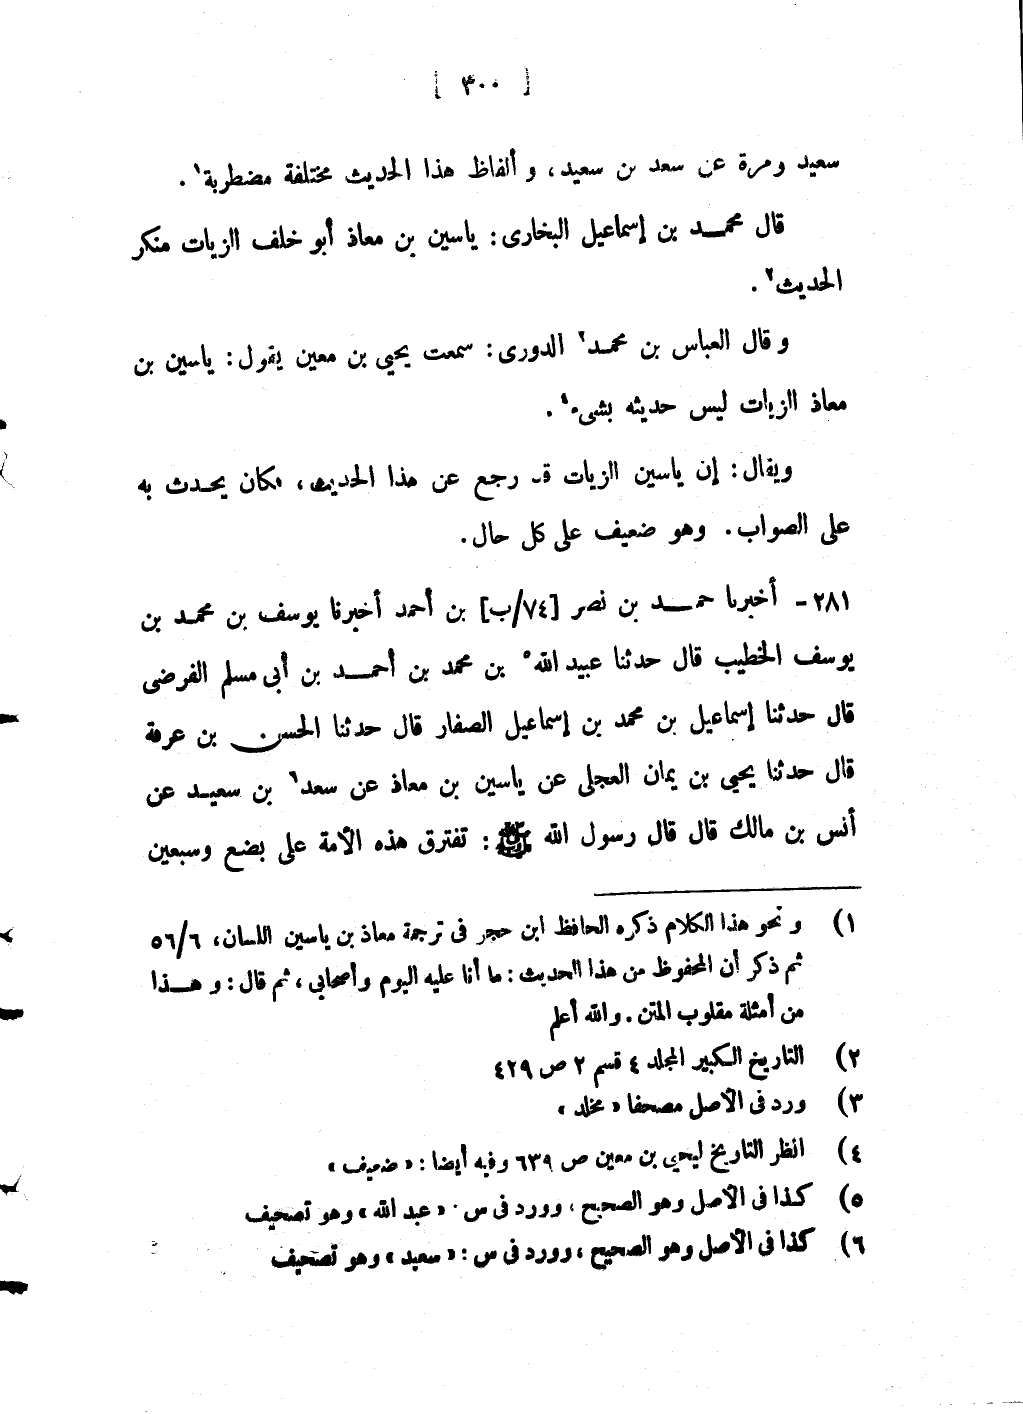 [ ٣٠٠ ]
سعيد ومرة عن سعد بن سعيد، و ألفاظ هذا الحديث مختلفة مضطربة١ .
قال محمـــد بن إسماعيل البخارى: ياسين بن معاذ أبو خلف الزيات منكر
الحديث٢ .
و قال العباس بن محمـد٣ الدورى: سمعت يحيى بن معين يقول: ياسين بن
معاذ الزيات ليس حديثه بشىء٤ .
ويقال: إن ياسين الزيات قد رجع عن هذا الحديث، فكان يحـدث به
على الصواب. وهو ضعيف على كل حال.
٢٨١- أخبرنا حمـــد بن نصر [٧٤/ب] بن أحمد أخبرنا يوسف بن محمـد بن
يوسف الخطيب قال حدثنا عبيد الله٥ بن محمد بن أحمـــد بن أبى مسلم الفرضى
قال حدثنا إسماعيل بن محمد بن إسماعيل الصفار قال حدثنا الحسن بن عرفة
قال حدثنا يحيى بن يمان العجلى عن ياسين بن معاذ عن سعد٦ بن سعيـد عن
أنس بن مالك قال قال رسول الله ﷺ : تفترق هذه الأمة على بضع وسبعين
١) و نحو هذا الكلام ذكره الحافظ ابن حجر فى ترجمة معاذ بن ياسين اللسان، ٥٦/٦
ثم ذكر أن المحفوظ من هذا الحديث: ما أنا عليه اليوم وأصحابي، ثم قال: و هـــذا
من أمثلة مقلوب المتن. والله أعلم
٢) التاريخ الكبير المجلد ٤ قسم ٢ ص ٤٢٩
٣) ورد فى الأصل مصحفا « مخلد »
٤) انظر التاريخ ليحيى بن معين ص ٦٣٩ وفيه أيضا: « ضعيف »
٥) كذا فى الأصل وهو الصحيح، وورد فى س: « عبد الله » وهو تصحيف
٦) كذا فى الأصل وهو الصحيح، وورد فى س: « سعيد » وهو تصحيف